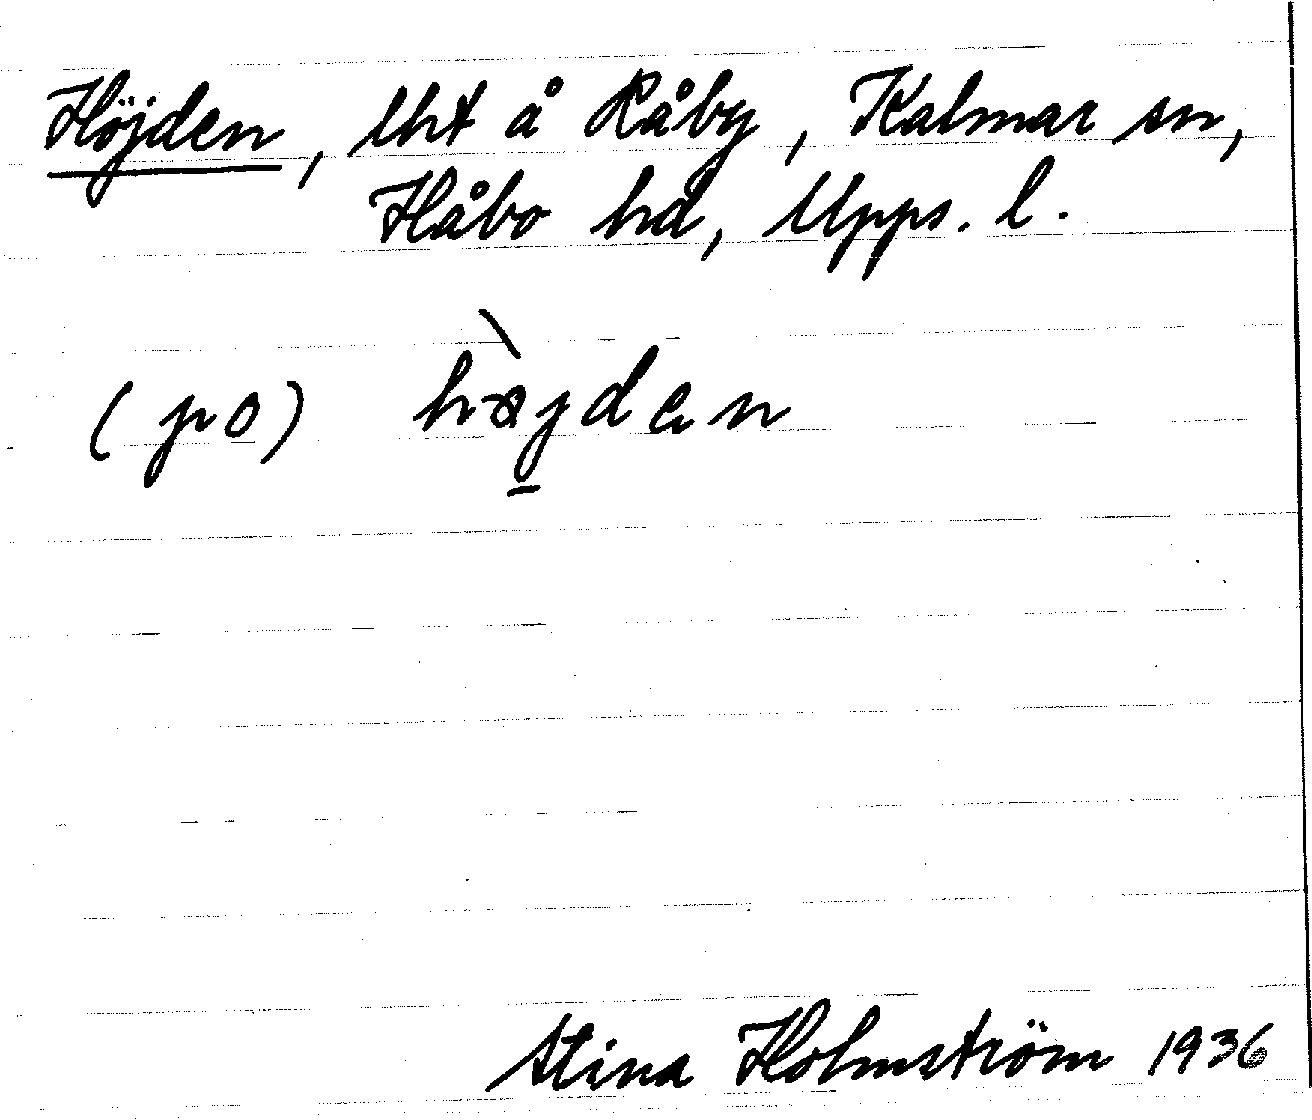 Höjden, lht å Råby, Kalmar sn,
Håbo hd, Upps. l.
(po) hàjden
Stina Holmström 1936